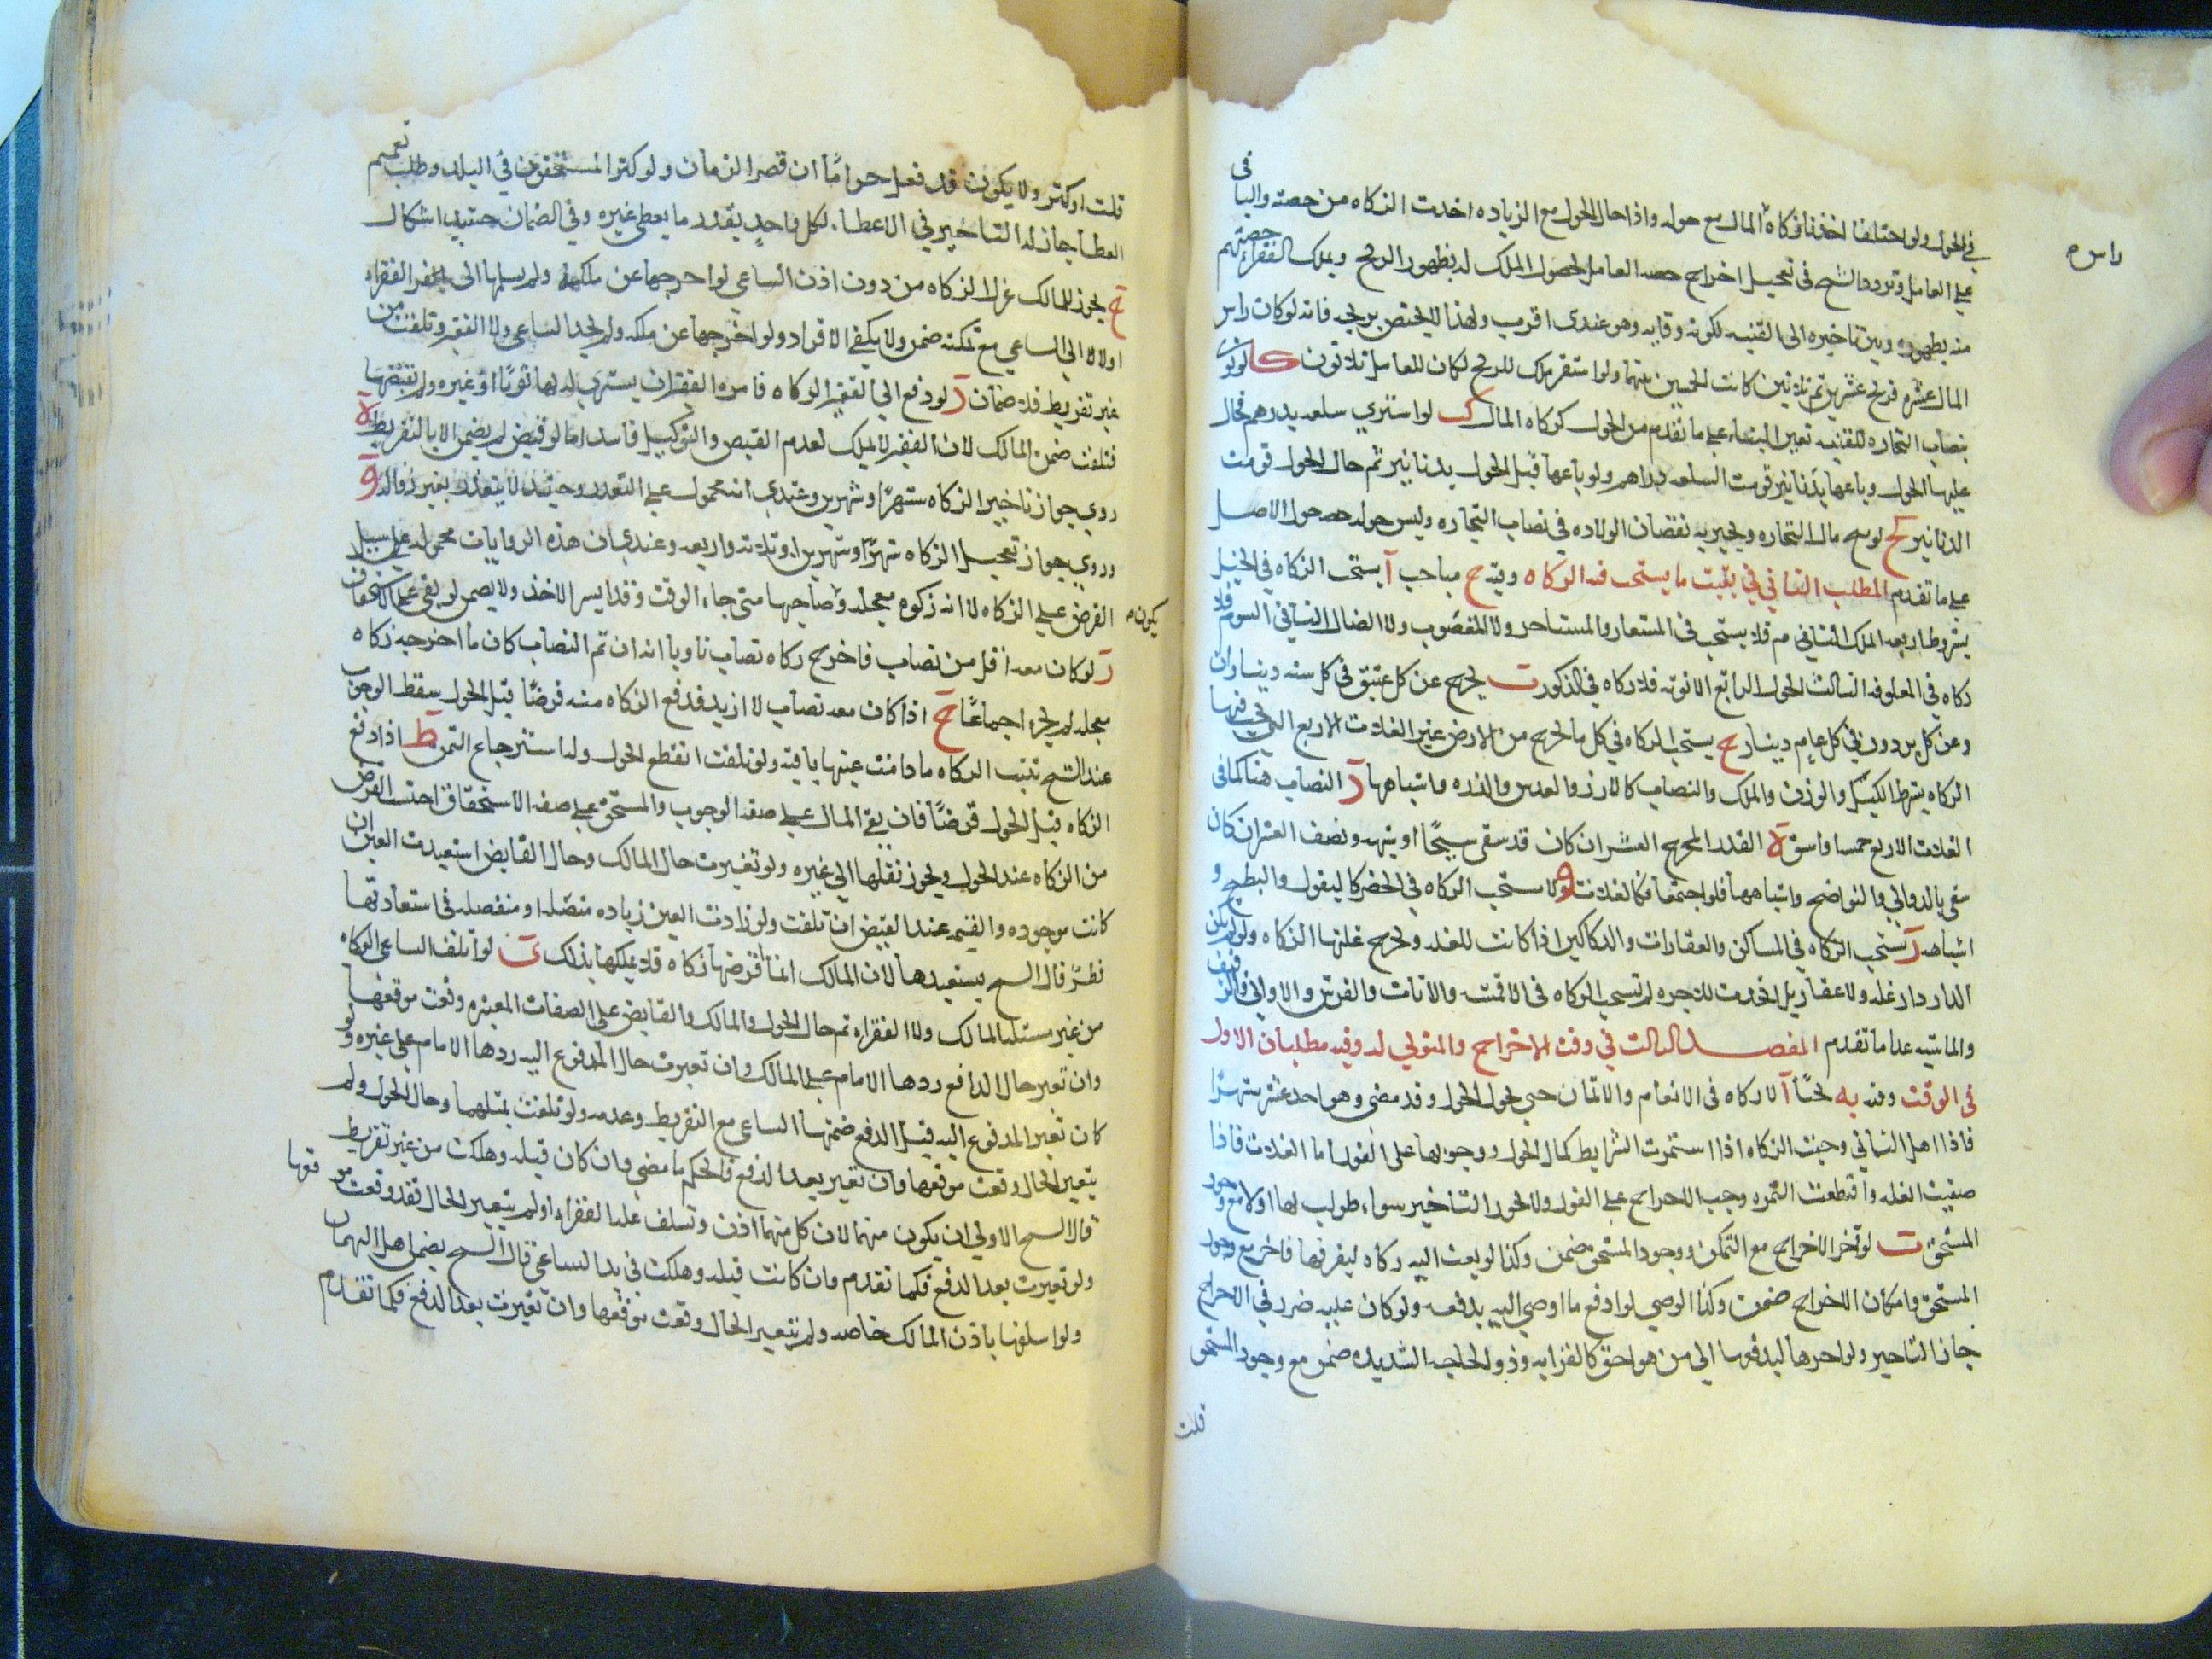 في الحول ولو اختلفا اخذنا زكاة المال مع حوله واذا حال الحول مع الزياده اخذت الزكاه من حصته والبا
في
راس
علي العامل وتردد الشيخ في تعجيل اخراج حصه العامل لحصول الملك له بظهور الربح وبملك الفقراء حصتهم
منه بظهوره وبين تاخيره الى القنيه لكونه وقايه وهو عندي اقرب ولهذا لا يختص بربحه فانه لو كان راس
المال عشره فربح عشرين ثم ثلاثين كانت الخمسين بينهما ولو استقر ملك للربح لكان للعامل ثلاثون كا لو نوى
بنصاب التجاره للقنيه تعين البناء علي ما تقدم من الحول كزكاه المال كب لو اشتري سلعه بدرهم فحال
عليها الحول وباعها بدنانير قومت السلعه دراهم ولو باعها قبل الحول بدنانير ثم حال الحول قومت
الدنانير كج نتج مال التجاره ويجبر به نقصان الولاده في نصاب التجاره وليس حوله حول الاصل
علي ما تقدم المطلب الثاني في بقيت ما يستحب فيه الزكاه وفيه ح مباحب آ يستحب الزكاه في الخيل
بشروط اربعه الملك الثاني م فلا يستحب في المستعار والمستاجر ولا المغصوب ولا الضال الثاني السوم فلا
زكاه في المعلوفه الثالث الحول الرابع الانوثه فلا زكاه في الذكور ب يخرج عن كل عتيق في كل سنه ديناران
وعن كل برذون في كل عام دينار ج يستحب الزكاه في كل ما يخرج من الارض غير الغلات الاربع التي يجب فيها
الزكاه بشرط الكيل والوزن والملك والنصاب كالارز والعدس والذره واشباهها د النصاب هنا كما في
الغلات الاربع خمسه اوسق ه القدر المخرج العشر ان كان قد سقى سيحا او شبهه ونصف العشر ان كان
سقي بالدوالي والنواضح واشباهها فلو اجتمعا فكالغلات و لا يستحب الزكاه في الخضر كالبقول والبطيخ و
اشباهه ز يستحب الزكاه في المساكن والعقارات والدكاكين اذا كانت للغله ويخرج غلتها الزكاه ولو لم يكن
الدار دار غله ولا عقار بل اتخذت للتجره لم تستحب الزكاه في الاقمشه والاثاث والفرش والاواني والرقيق
والماشيه عدا ما تقدم المفصد الثالث في وقت الاخراج والمتولي له وفيه مطلبان الاول
في الوقت وفيه يه بحثا آ لا زكاه في الانعام والاثمان حتي يحول الحول وقد مضى وهو احد عشر شهرا
فاذا اهل الثاني وجبت الزكاه اذا استمرت الشرايط كمال الحول ووجوبها على الفور اما الغلات فاذا
صفيت الغله واقتطعت الثمره وجب الاخراج علي الفور ولا يجوز التاخير سواء طولب بها او لا مع وجود
المستحق ب لو تاخر الاخراج مع التمكن ووجود المستحق ضمن وكذا لو بعث اليه زكاه ليفرقها فاخر مع وجود
المستحق وامكان الاخراج ضمن وكذا الوصي لو ادفع ما اوصي اليه بدفعه ولو كان عليه ضرر في الاخراج
جاز التاخير ولو اخرها ليدفعها الي من هو احق كالقرابه وذو الحاجه الشديده ضمن مع وجود المستحق
قلت
قلت او كثرت ولا يكون قد فعل حراما ان قصر الزمان ولو كثر المستحقون في البلد وطلب تعميم
العطا جاز له التاخير في الاعطاء لكل واحد بقدر ما يعطي غيره وفي الضمان حينئذ اشكال
ج يجوز للمالك عزل الزكاه من دون اذن الساعي لو اخرجها عن ملكه ولم يسلمها الى الفقراء
اولا الي الساعي مع تمكنه ضمن ولا يكفي الافراد ولو اخرجها عن ملكه ولم يجد الساعي ولا الفقير وتلفت من
غير تفريط فلا ضمان د لو دفع الي الفقير الزكاه فامره الفقير ان يشتري له بها ثوبا او غيره ولم يقبضها
فتلفت ضمن المالك لان الفقير لا يملك لعدم القبض والتوكيل فاسد اما لو قبض لم يضمن الا بالتفريط ه
روي جواز تاخير الزكاه شهرا وشهرين وعندي انه محمول علي التعذر وحينئذ لا يتقدر بغير زواله و
وروي جواز تعجيل الزكاه شهرا وشهرين وثلاثه واربعه وعندي ان هذه الروايات محموله علي سبيل
يكون
القرض علي الزكاه لا انه زكوه معجله وصاحبها متى جاء الوقت وقد ايسر الاخذ ولا يضمن لو بقي علي الاستحقاق
ز لو كان معه اقل من نصاب فاخرج زكاه نصاب ناويا انه ان تم النصاب كان ما اخرجه زكاه
معجله لم يجز اجماعا ح اذا كان معه نصاب لا ازيد فدفع الزكاه منه قرضا قبل الحول سقط الوجوب
عند الشيخ تثبت الزكاه ما دامت عينها باقيه ولو تلفت انقطع الحول وله استرجاع الثمن ط اذا دفع
الزكاه قبل الحول قرضا فان بقي المال علي صفه الوجوب والمستحق علي صفه الاستحقاق احتسب القرض
من الزكاه عند الحول ويجوز نقلها الي غيره ولو تغيرت حال المالك وحال القابض استعيدت العين ان
كانت موجوده والقيمه عند القبض ان تلفت ولو زادت العين زياده متصله او منفصله في استعادتها
نظر قال الشيخ يستعيدها لان المالك انما اقرضها زكاه فلا يملكها بذلك ى لو اتلف الساعي الزكاه
من غير مسئله المالك ولا الفقراء ثم حال الحول والمالك والقابض علي الصفات المعتبره وقعت موقعها
وان تغير حال الدافع ردها الامام علي المالك وان تغيرت حال المدفوع اليه ردها الامام علي غيره ولو
كان تغير المدفوع اليه قبل الدفع ضمنها الساعي مع التفريط وعدمه ولو تلفت بمثلهما وحال الحول ولم
يتغير الحال وقعت موقعها وان تغير بعد الدفع فالحكم ما مضى وان كان قبله وهلكت من غير تفريط
قال الشيخ الاولي ان يكون منهما لان كل منهما اذن وتسلف عليه الفقراء ولم يتغير الحال فقد وقعت مو قعها
ولو تغيرت بعد الدفع فكما تقدم وان كانت قبله وهلكت في يد الساعي قال الشيخ يضمن اهل السهمان
ولو اسلفها باذن المالك خاصه ولم يتغير الحال وقعت موقعها وان تغيرت بعد الدفع فكما تقدم